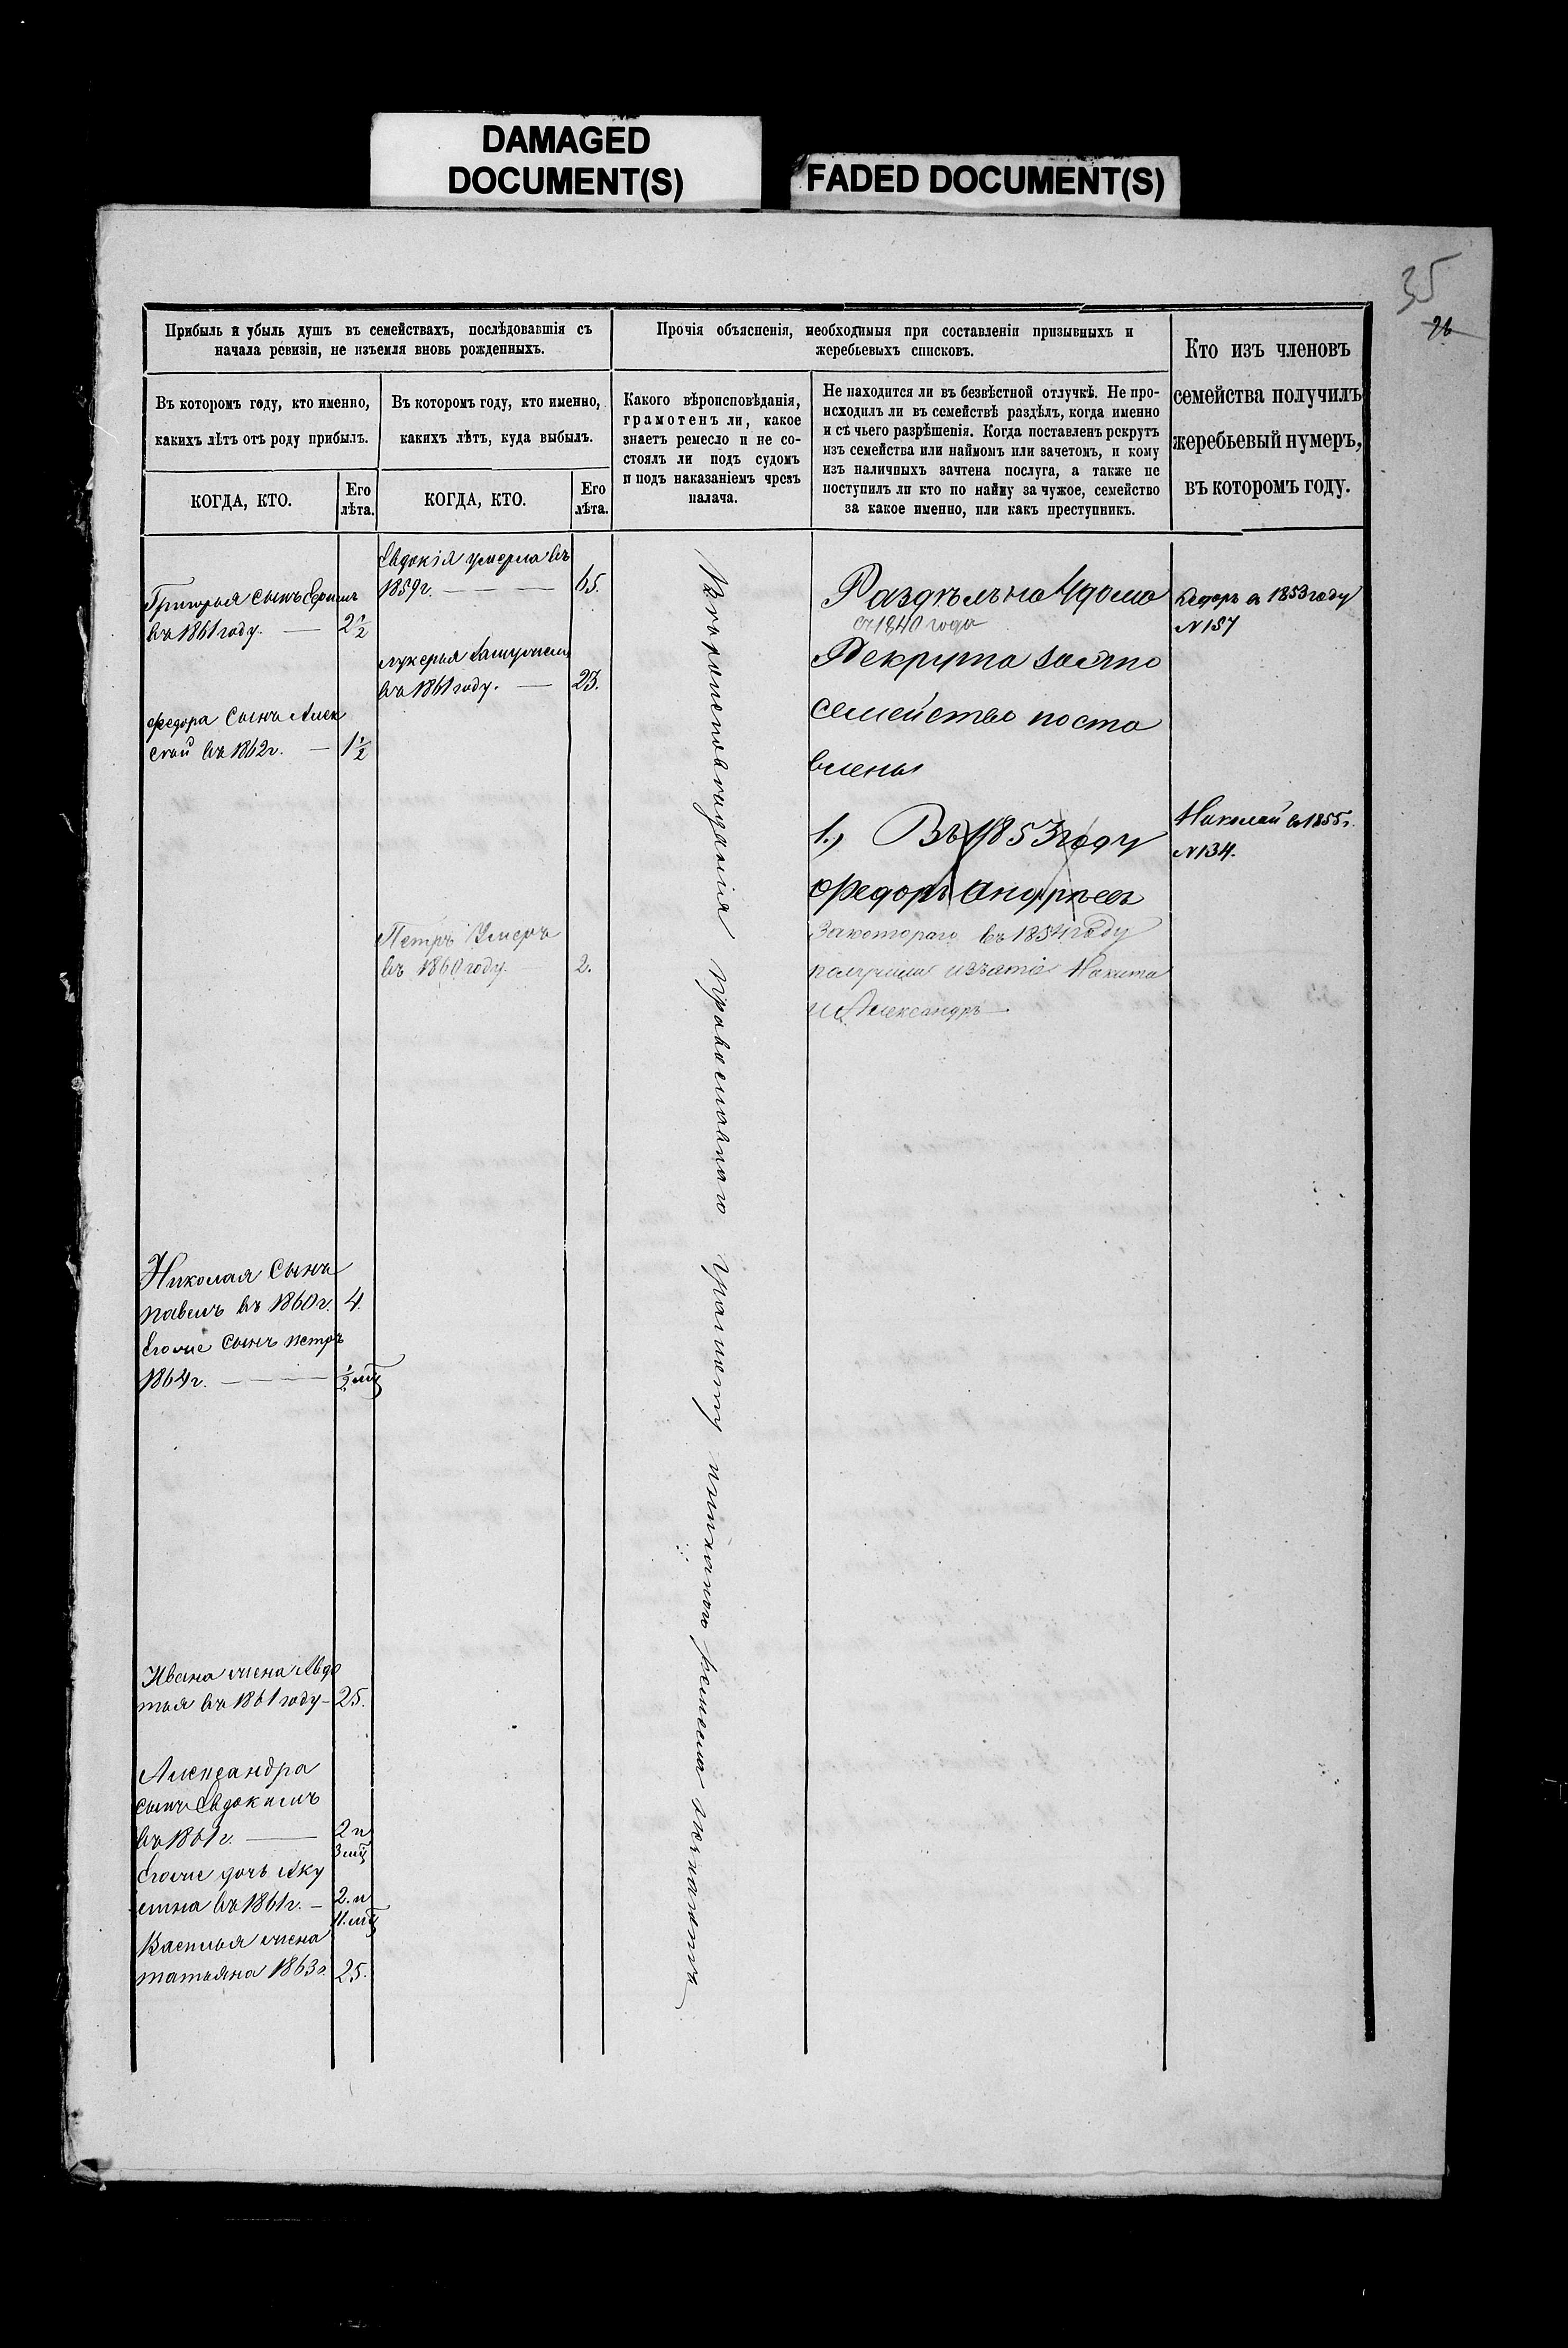 DAMAGED
DOCUMENT(S)
FADED DOCUMENT(S)
35
26
Прибыль и убыль душъ въ семействахъ, послѣдовавшія съ
начала ревизіи, не изъемля вновь рожденныхъ.
Въ которомъ году, кто именно,
какихъ лѣтъ отъ роду прибылъ.
КОГДА, КТО.
Его
лѣта.
Въ которомъ году, кто именно,
какихъ лѣтъ, куда выбылъ.
КОГДА, КТО.
Его
лѣта.
Прочія объясненія, необходимыя при составленіи призывныхъ и
жеребьевыхъ списковъ.
Какого вѣроисповѣданія,
грамотенъ ли, какое
знаетъ ремесло и не со-
стоялъ ли подъ судомъ
и подъ наказаніемъ чрезъ
палача.
Не находится ли въ безвѣстной отлучкѣ. Не про-
исходилъ ли въ семействѣ раздѣлъ, когда именно
и съ чьего разрѣшенія. Когда поставленъ рекрутъ
изъ семейства или наймомъ или зачетомъ, и кому
изъ наличныхъ зачтена послуга, а также не
поступилъ ли кто по найму за чужое, семейство
за какое именно, или какъ преступникъ.
Кто изъ членовъ
семейства получилъ
жеребьевый нумеръ,
въ которомъ году.
Григорья сынъ
въ 1861 году. — 2 1/2
федора Сынъ Алек
сѣй въ 1862 г. — 1 1/2
Николая Сынъ
павелъ въ 1860 г. 4.
Егоже Сынъ петръ
1864 г. — — — 1/2 мц
Ивана жена Авдо
тья въ 1861 году — 25.
Александра
сынъ Евдокимъ
въ 1861 г. — 2 и
3 мц
Егоже дочь Аку
лина въ 1861 г. — 2. и
11. мц
Василья жена
татьяна 1863 г. 25.
Евдокія умерла въ
1859 г. — — — 65.
лукерья Замужемъ
въ 1861 году. — 23.
Петръ Умеръ
въ 1860 году. 2.
Вѣроисповѣданія Православнаго Грамоту никакого ремесла
Раздѣлъ на 4 дома
съ 1840 года
Рекрута
семейство поста
влены
1., Въ 1853 году
Федоръ Андрѣевъ
Закотораго въ 1854 году
получили изъятіе Никита
и Александръ
Федоръ в 1853 году
N 157
Николай в 1855 г.
N 134.